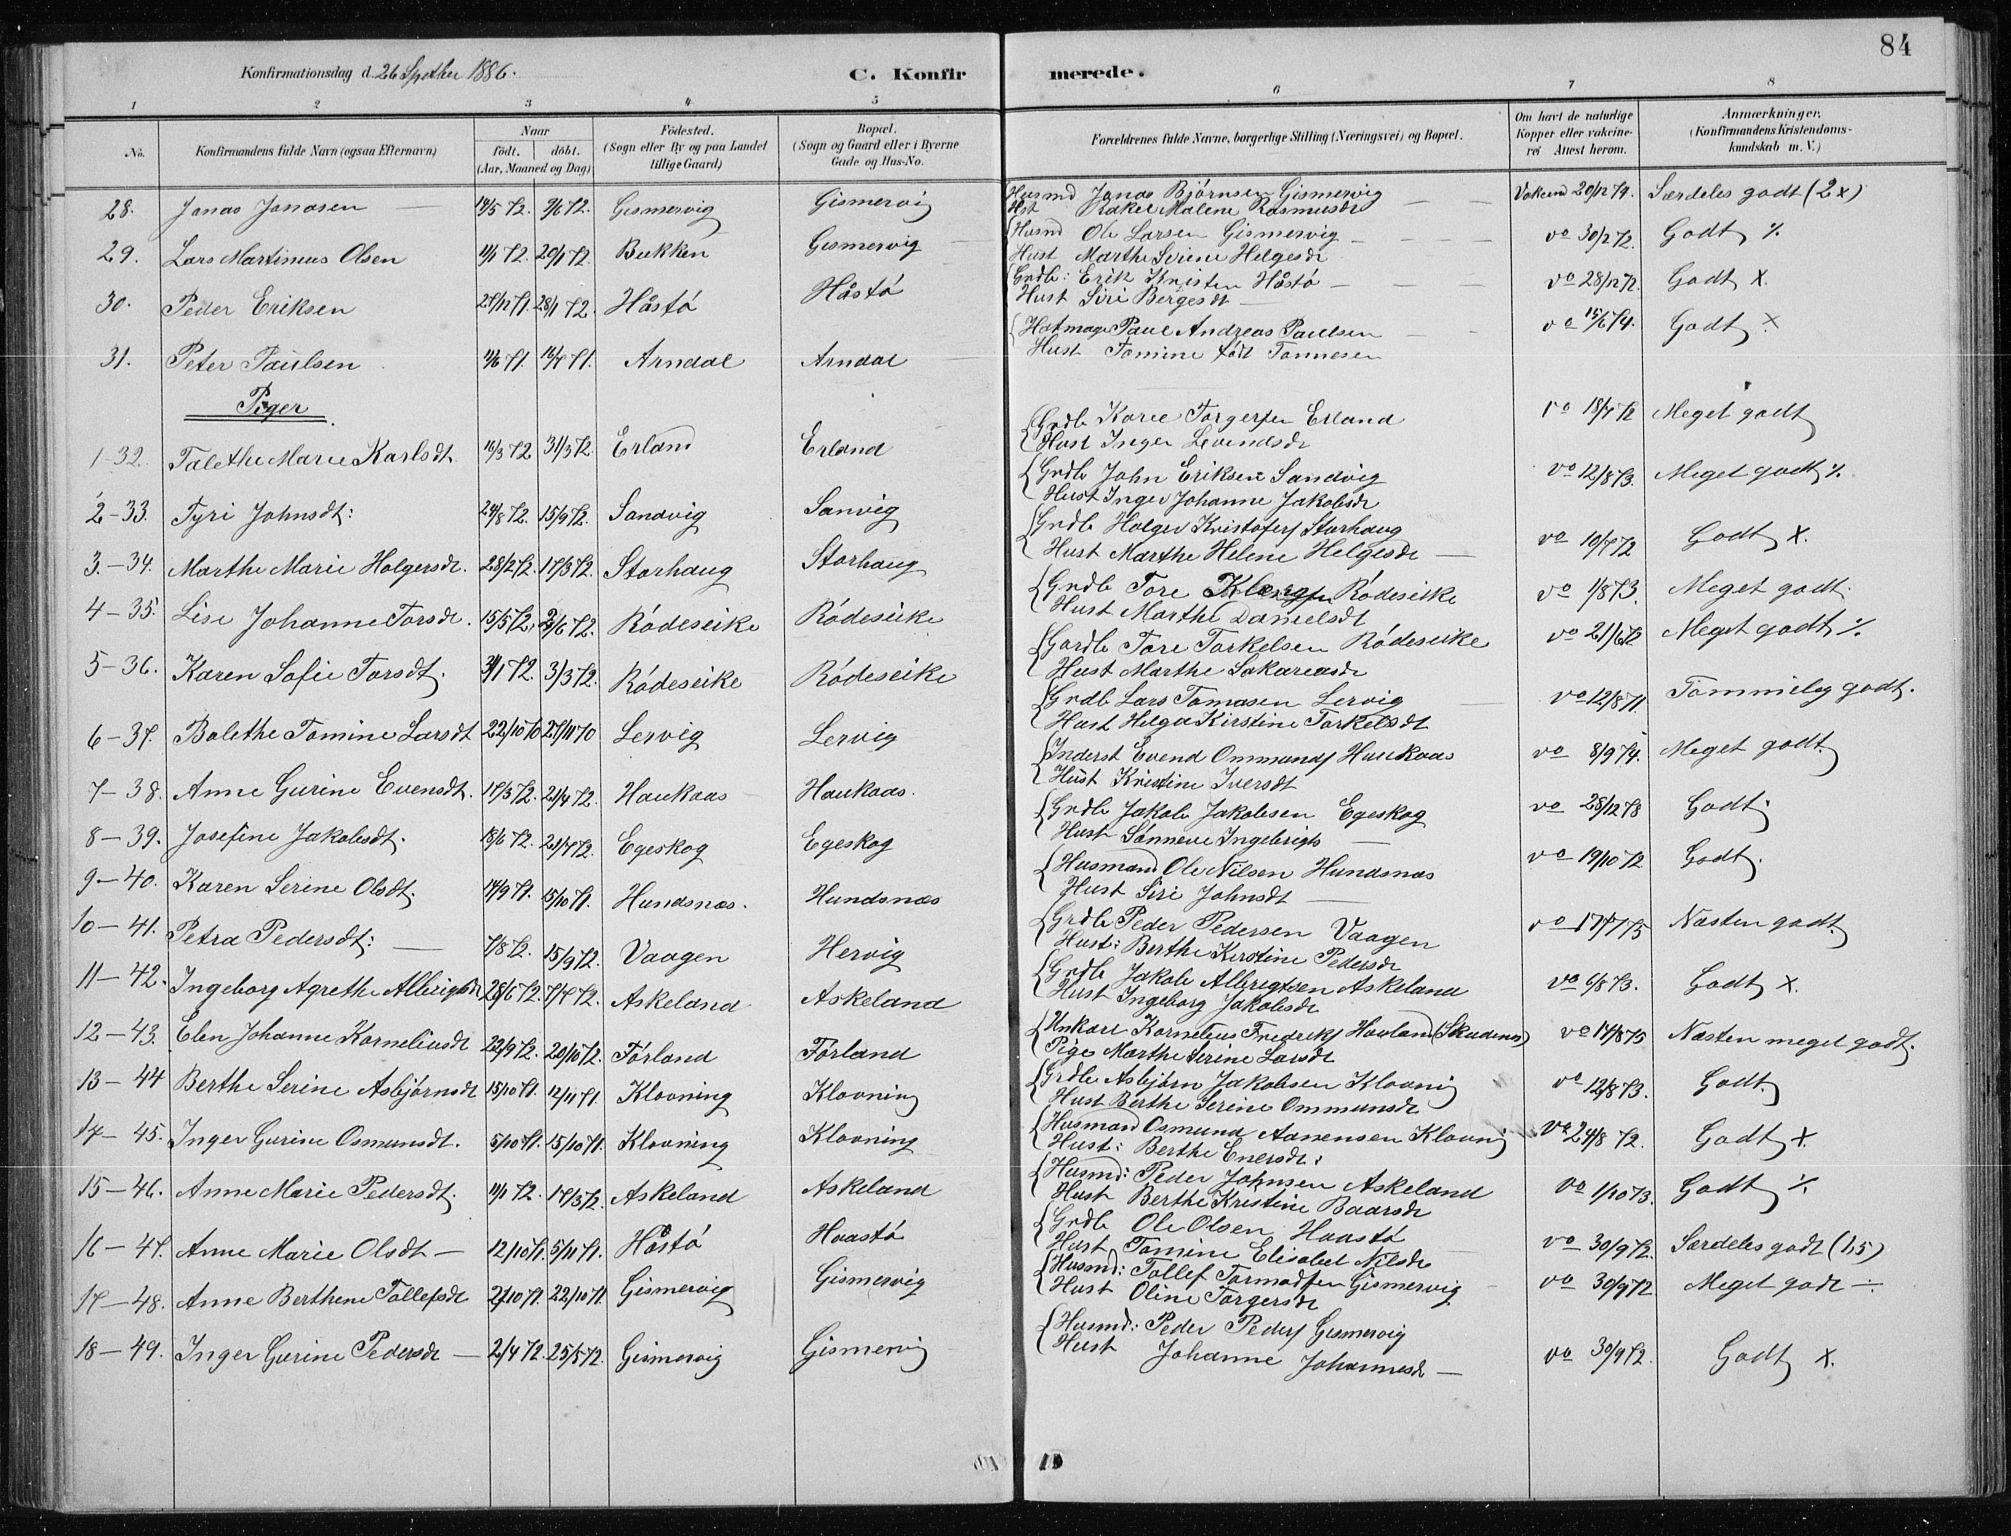 84
Konfirmationsdag d. 26 Septbr 1886.
C. Konfirmerede.
1 2 3 4 5 6 7 8
No.
Konfirmandens fulde Navn (ogsaa Efternavn)
Naar
født. døbt.
(Aar, Maaned og Dag)
Fødested.
(Sogn eller By og paa Landet
tillige Gaard)
Bopæl.
(Sogn og Gaard eller i Byerne
Gade og Hus-No.
Forældrenes fulde Navne, borgerlige Stilling (Næringsvei) og Bopæl.
Om havt de naturlige
Kopper eller vakcine-
rei Attest herom.
Anmærkninger.
(Konfirmandens Kristendoms-
kundskab m. V.)
28. Jonas Jonasen 19/5 72. 9/6 72. Gismervig Gismervig Husmd Jonas Bjørnsen Gismervig Vakcind 20/12 74. Særdeles godt (2x)
Hst Rakel Malene Rasmusdr
29. Lars Martinus Olsen 11/1 72. 29/1 72. Bukken Gismervig Husmd Ole Larsen Gismervig vo 30/12 72. Godt %
Hust Marthe Serine Helgesdr
30. Peder Eriksen 27/12 71. 28/1 72. Håstø Håstø Grdb: Erik Kristen Håstø vo 28/12 72. Godt x.
Hust Siri Bergesdt
31. Peter Paulsen 11/6 71. 16/7 71. Arndal Arndal Hatmager Paul Andreas Paulsen vo 15/6 74. Godt x
Hust Tomine født Tønnesen
Piger
1-32. Talethe Marie Karlsdt. 16/3 72 31/3 72. Erland Erland Grdb Karee Torgersen Erland vo 18/7 72 Meget godt
Hust Inger Sevendsdr
2-33. Tyri Johnsdt: 24/8 72. 15/9 72. Sandvig Sanvig Grdb John Eriksen Sandvig vo 12/8 73. Meget godt %
Hust Inger Johanne Jakobsdr
3.-34. Marthe Marie Holgersdr. 28/2 72. 17/3 72. Storhaug Storhaug Grdb Holger Kristofers Storhaug vo 10/7 72 Godt x.
Hust Marthe Helene Helgesdr
4-35. Lise Johanne Torsdr. 15/5 72. 2/6 72. Rødeseike Rødeseike Grdb Tore Klengsen Rødeseike vo 1/8 73. Meget godt.
Hust Marthe Danielsdt
5-36. Karen Sofie Torsdt. 3/1 72. 3/3 72. Rødeseike Rødeseike Gardb Tore Torkelsen Rødeseike vo 21/6 72 Meget godt %
Hust Marthe Sakariasdr
6-37. Bolethe Tomine Larsdt 22/10 70 27/11 70 Lervig Lervig Grdb Lars Tomasen Lervig vo 12/8 71. Tømmelig godt.
Hust Helga Kirstine Torkelsdt
7-38. Anne Gurine Evensdt. 17/3 72. 21/4 72. Haukaas Haukaas. Inderst Evend Ommunds Haukaas vo 8/9 74. Meget godt.
Hust Kristine Iversdt
8-39. Josefine Jakobsdt. 18/6 72. 21/7 72. Egeskog Egeskog Grdb Jakob Jakobsen Egeskog vo 28/12 78 Godt.
Hust Sønneve Ingebrigts
9-40. Karen Serine Olsdt. 14/9 71. 15/10 71. Hundsnæs. Hundsnæs Husmand Ole Nilsen Hundsnæs vo 19/10 72 Godt.
Hust Siri Johnsdt
10-41. Petra Pedersdt: 7/8 72. 15/9 72. Vaagen Hervig Grdb Peder Pedersen Vaagen vo 17/7 75 Næsten godt
Hust: Berthe Kirstine Pedersdr
11-42. Ingeborg Agrethe Albrigtsdr 28/6 72. 7/7 72. Askeland Askeland Grdb Jakob Albrigtsen Askeland vo 6/8 73. Godt x.
Hust Ingeborg Jakobsdr
12-43. Elen Johanne Korneliusdt 22/9 72. 20/10 72. Førland Førland Unkarl Kornelius Frederiks Hovland (Skudenes) vo 14/8 75 Næsten meget godt.
Pige Marthe Serine Larsdr
13-44 Berthe Serine Asbjørnsdt 15/10 71. 12/11 71. Klovning Klovning Grdb Asbjørn Jakobsen Klovning vo 12/8 73. Godt.
Hust Berthe Serine Ommunsdr
14-45. Inger Gurine Osmunsdt. 5/10 71. 15/10 71. Klovning Klovning Husmand Osmund Aanensen Klovnig vo 24/8 72. Godt x
Hust: Berthe Enersdt:
15-46. Anne Marie Pedersdt. 11/1 72. 17/3 72. Askeland Askeland Husmd: Peder Johnsen Askeland vo 1/10 73. Godt %
Hust Berthe Kristine Baarsdr
16-47. Anne Marie Olsdt 12/10 71. 5/11 71. Håstø Haastø Grdb Ole Olsen Haastø vo 30/9 72. Særdeles godt (1,5)
Hust Tomine Elisabet Nilsdr
17-48. Anne Berthene Tollefsdr 2/10 71. 22/10 71. Gismervig Gismervig Husmd: Tollef Tormodsen Gismervig vo 30/9 72 Meget godt ÷
Hust Oline Torgersdr
18-49. Inger Gurine Pedersdr 2/4 72. 25/5 72. Gismervig Gismervig Husmd: Peder Peders Gismervig vo 30/9 72. Godt x.
Hust Johanne Johannesdr